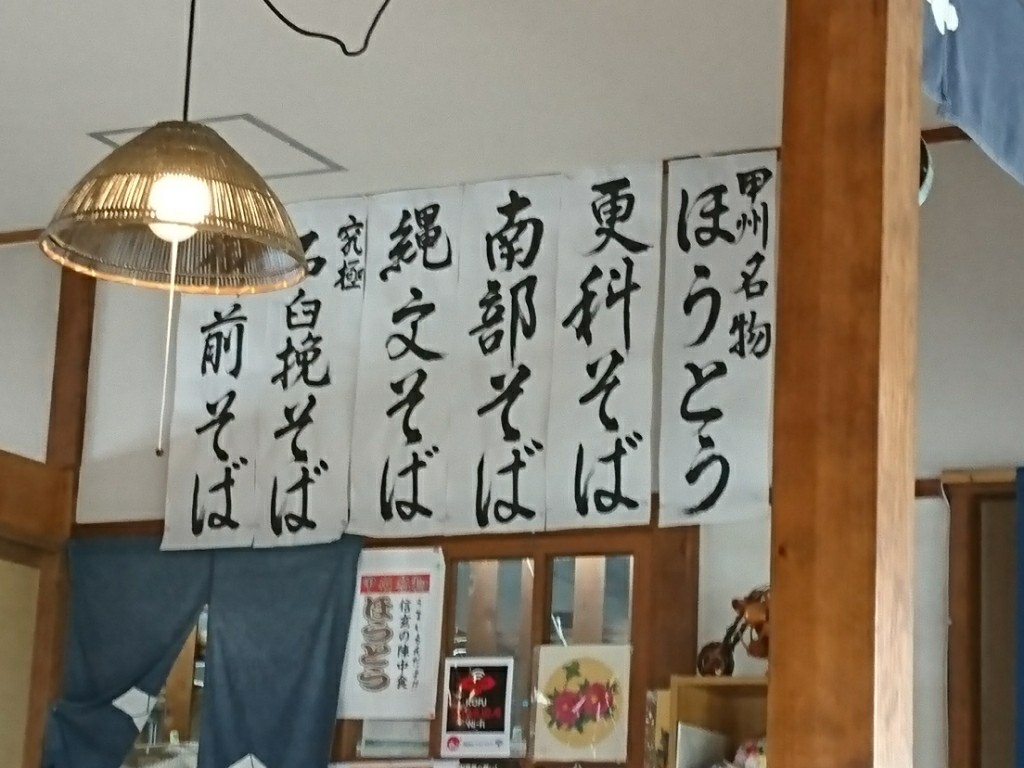 甲州名物
ほうとう
更科そば
南部そば
縄文そば
究極
石臼挽そば
前そば
甲州名物
ほうとう
信玄の陣中食
KOFU
Wi-Fi